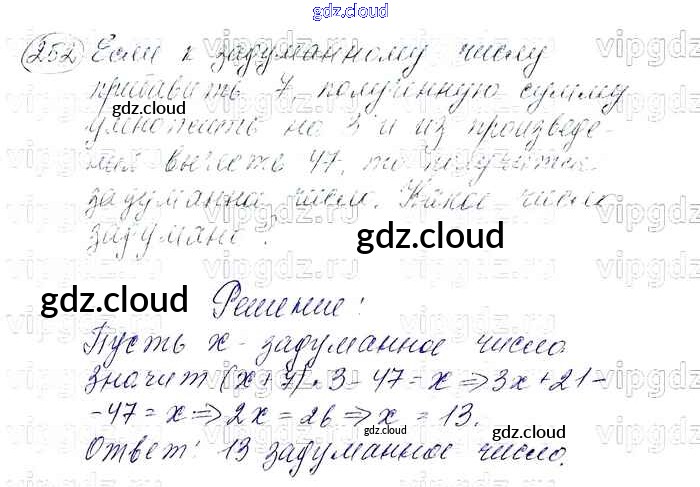 gdz.cloud
252 Если к задуманному числу
прибавить 7 полученную сумму
умножить на 3 и из произведе-
ния вычесть 47, то получится
задуманна число. Какое число
задумано?
gdz.cloud
gdz.cloud
gdz.cloud
Решение:
Пусть x - задуманное число.
Значит (x+7)·3-47=x⇒3x+21-
-47=x⇒2x=26⇒x=13.
gdz.cloud
gdz.cloud
Ответ: 13 задуманное число.